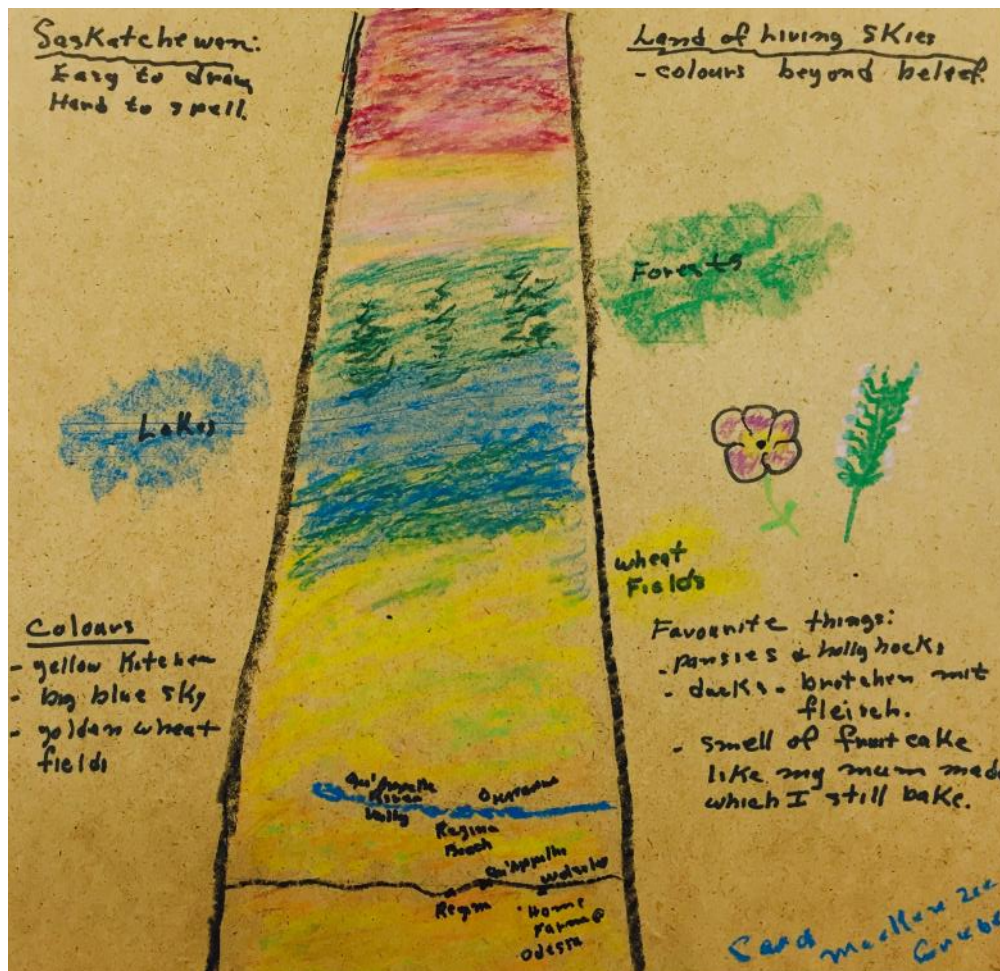 Saskatchewan:
Easy to draw
Hard to spell.
Land of Living Skies
- colours beyond belief.
Forests
Lakes
Wheat
Fields
Colours
- yellow kitchen
- big blue sky
- golden wheat
fields
Favourite things:
- pansies & hollyhocks
- ducks - brotchen mit
fleisch.
- smell of fruitcake
like my mum made
which I still bake.
Qu'Appelle
River
Valley
Regina
Beach
Qu'Appelle
Wolseley
Regina
Home
Farm @
Odessa
MacKenzie